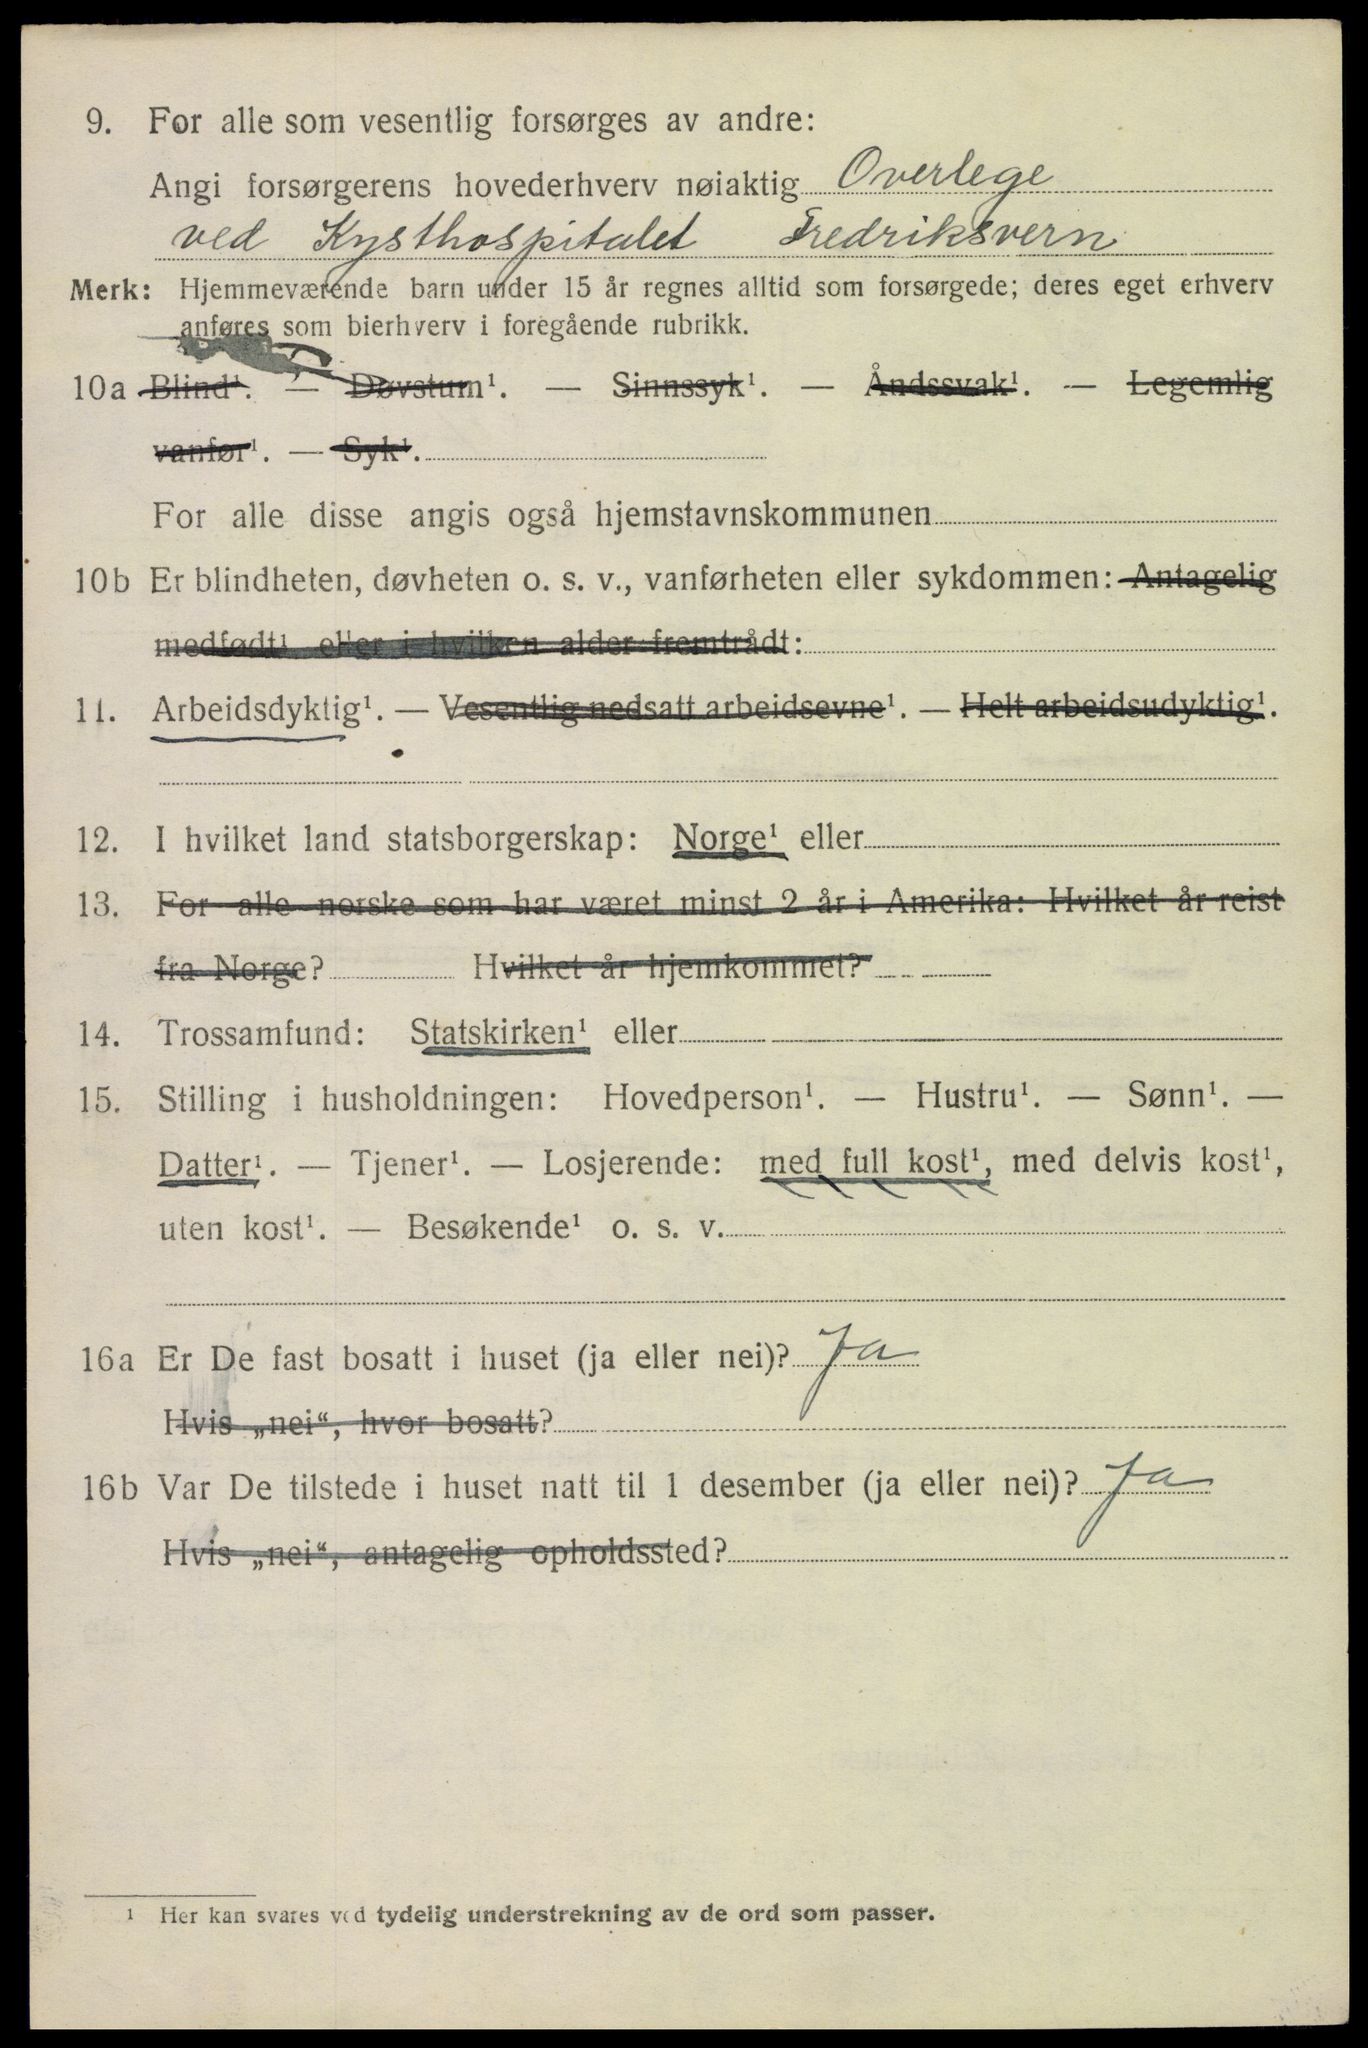 9. For alle som vesentlig forsørges av andre:
Angi forsørgerens hovederhverv nøiaktig Overlege
ved Kysthospitalet Fredriksvern
Merk: Hjemmeværende barn under 15 år regnes alltid som forsørgede; deres eget erhverv
anføres som bierhverv i foregående rubrikk.
10a Blind¹. — Døvstum¹. — Sinnssyk¹. — Åndssvak¹. — Legemlig
vanfør¹. — Syk¹.
For alle disse angis også hjemstavnskommunen
10b Er blindheten, døvheten o. s. v., vanførheten eller sykdommen: Antagelig
medfødt¹, eller i hvilken alder fremtrådt:
11. Arbeidsdyktig¹. — Vesentlig nedsatt arbeidsevne¹. — Helt arbeidsudyktig¹.
12. I hvilket land statsborgerskap: Norge¹ eller
13. For alle norske som har været minst 2 år i Amerika: Hvilket år reist
fra Norge? Hvilket år hjemkommet?
14. Trossamfund: Statskirken¹ eller
15. Stilling i husholdningen: Hovedperson¹. — Hustru¹. — Sønn¹. —
Datter¹. — Tjener¹. — Losjerende: med full kost¹, med delvis kost¹,
uten kost¹. — Besøkende¹ o. s. v.
16a Er De fast bosatt i huset (ja eller nei)? Ja
Hvis „nei“, hvor bosatt?
16b Var De tilstede i huset natt til 1 desember (ja eller nei)? Ja
Hvis „nei“, antagelig opholdssted?
¹ Her kan svares ved tydelig understrekning av de ord som passer.